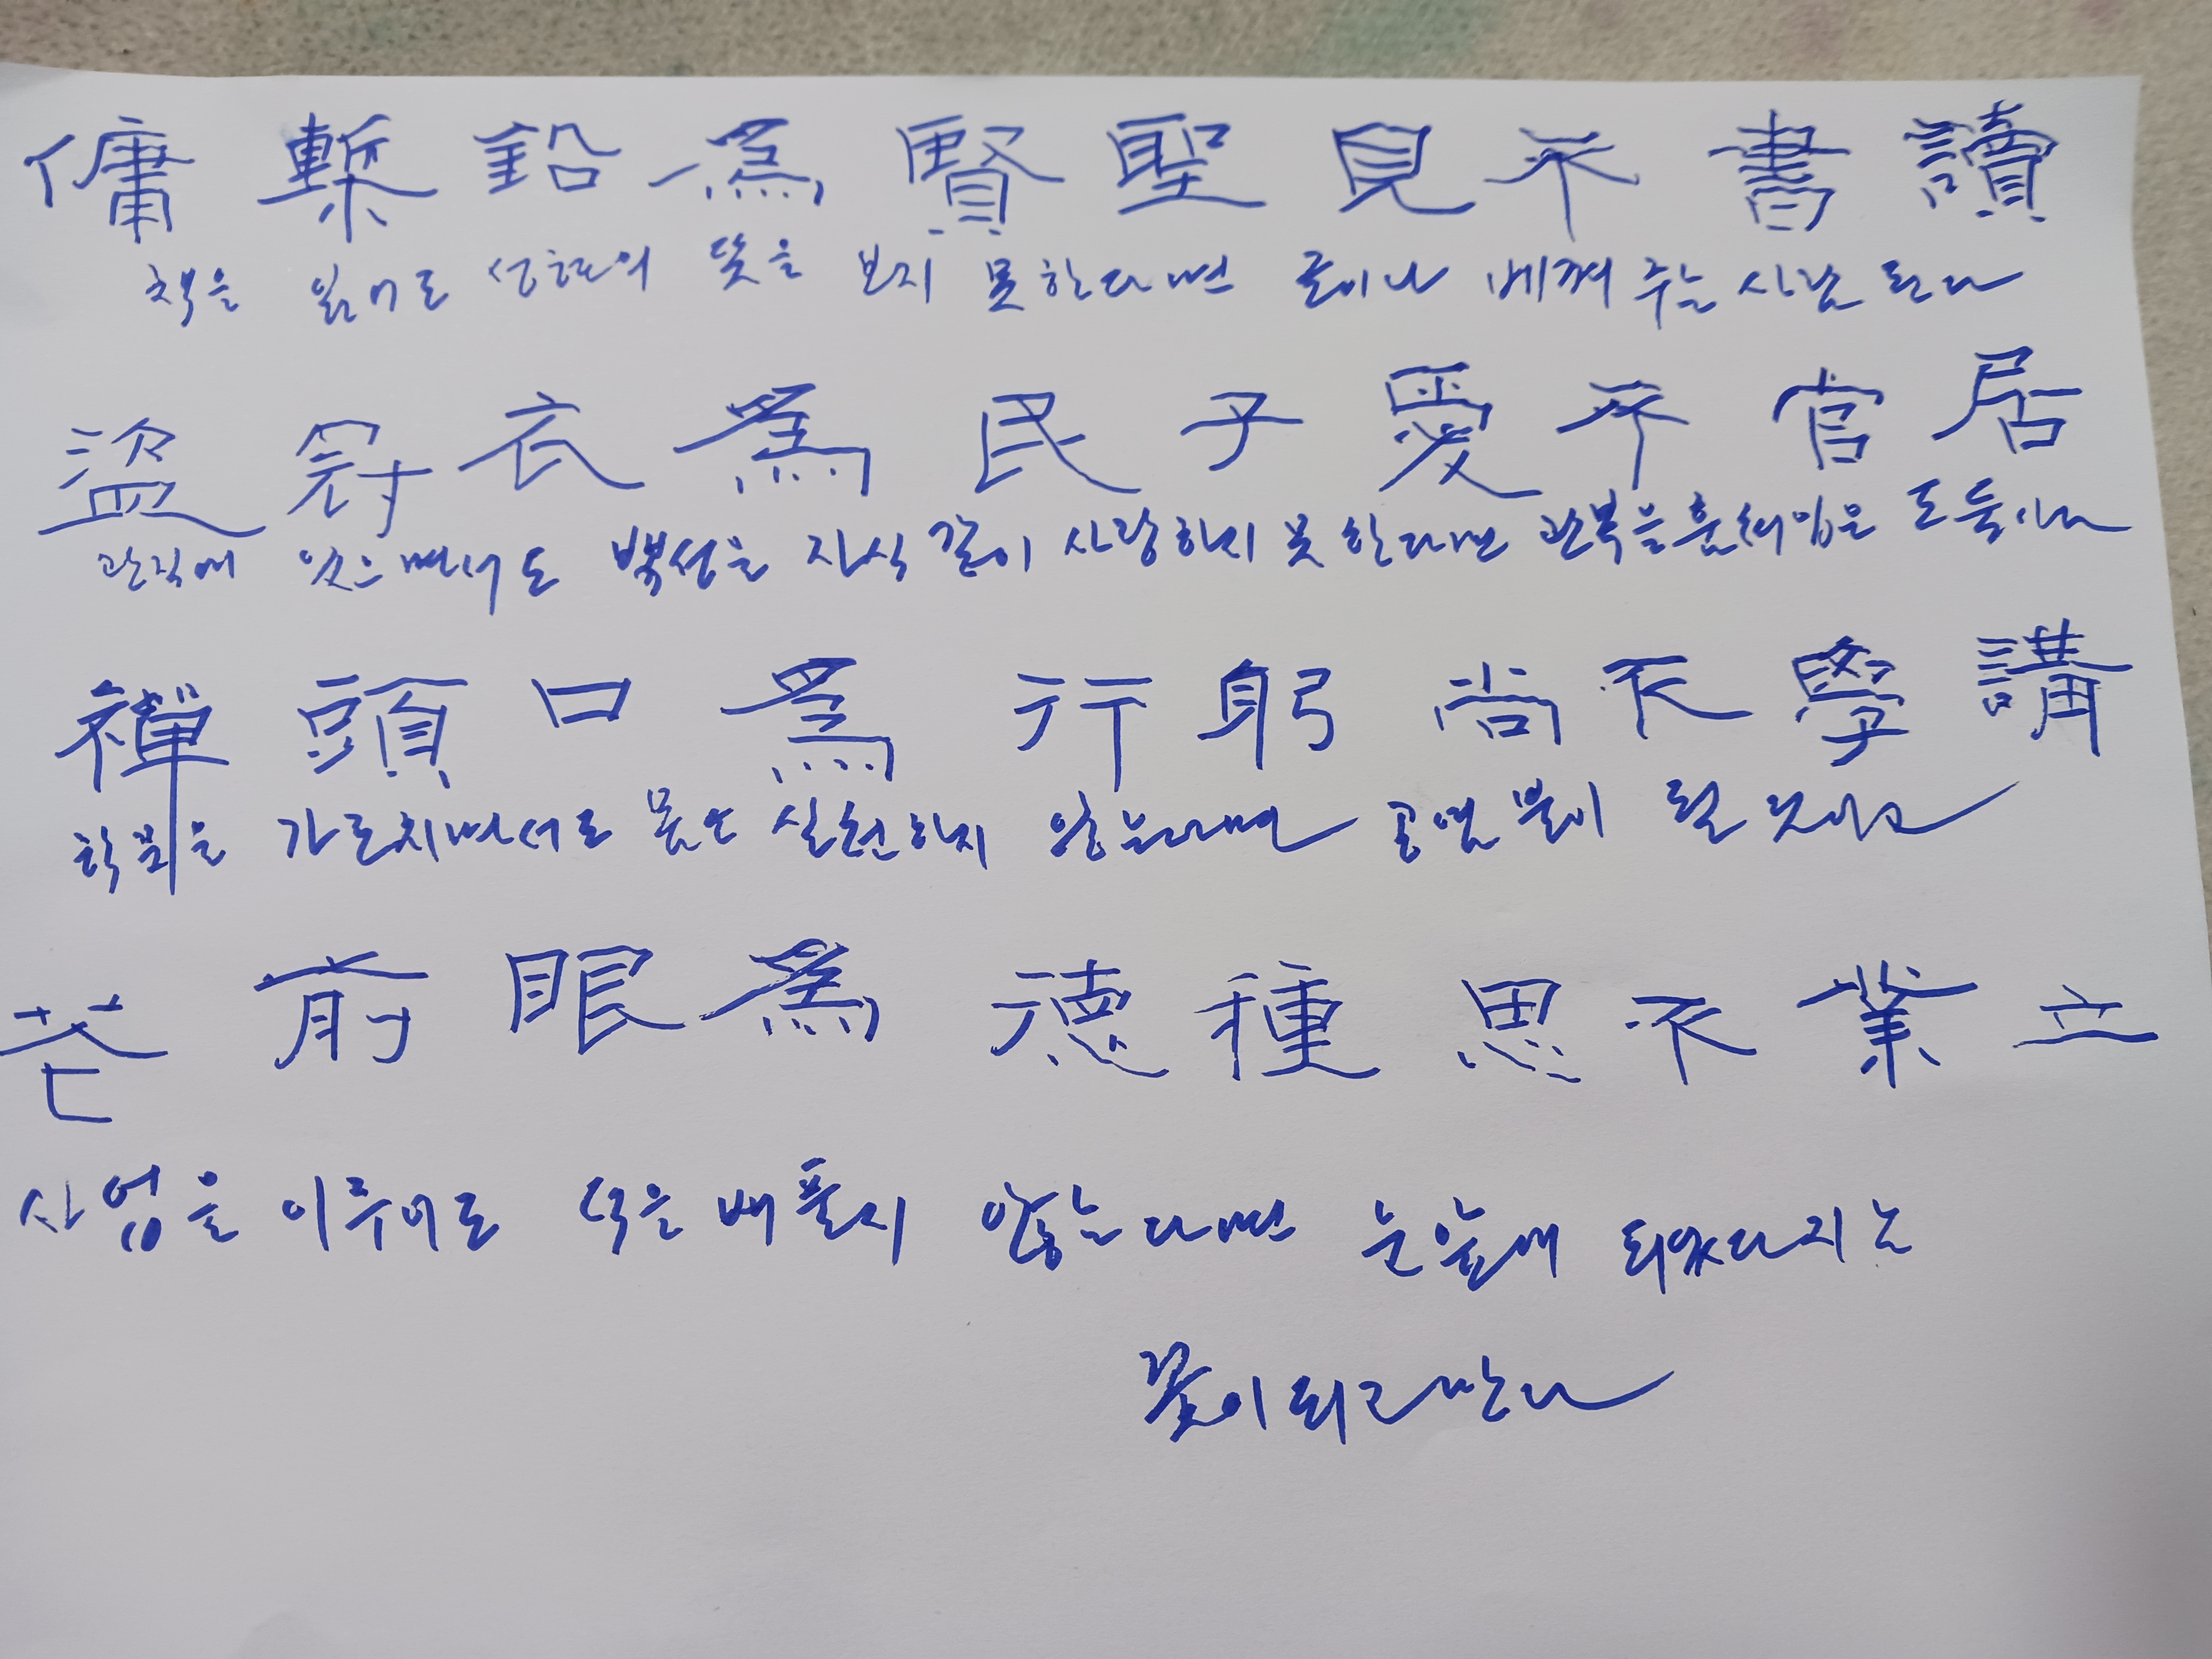 讀書不見聖賢爲鉛槧傭
책을 읽어도 성현의 뜻을 보지 못한다면 글이나 베껴 주는 사람 된다
居官不愛子民爲衣冠盜
관직에 있으면서도 백성을 자식 같이 사랑하지 못한다면 관복을 훔쳐입은 도둑이다
講學不尚躬行爲口頭禪
학문을 가르치면서도 몸소 실천하지 않는다면 공염불이 될 것이고
立業不思種德爲眼前花
사업을 이루어도 덕을 베풀지 않는다면 눈앞에 되었다 지는
꽃이 되고 만다